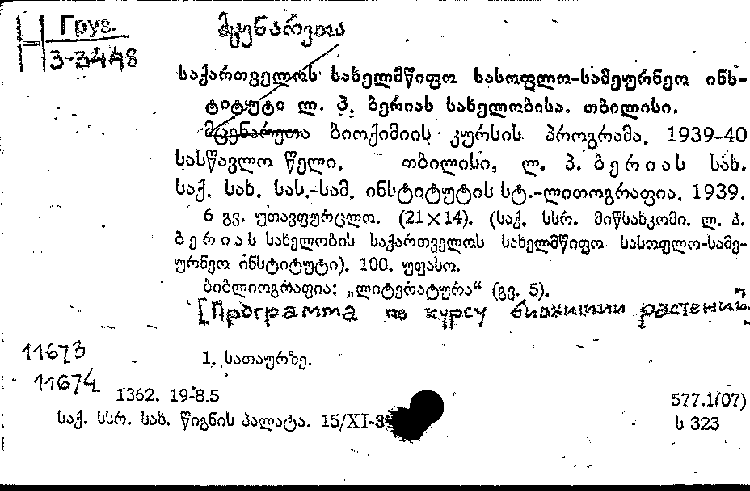 Груз. მცენარეთა
3-3448
საქართველოს სახელმწიფო სასოფლო-სამეურნეო ინს-
ტიტუტი ლ. პ. ბერიას სახელობისა. თბილისი.
მცენარეთა ბიოქიმიის კურსის პროგრამა. 1939-40
სასწავლო წელი. თბილისი, ლ. პ. ბერიას სახ.
საქ. სახ. სას.-სამ. ინსტიტუტის სტ.-ლითოგრაფია. 1939.
6 გვ. უთავფურცლო. (21×14). (საქ. სსრ. მიწსახკომი. ლ. პ.
ბერიას სახელობის საქართველოს სახელმწიფო სასოფლო-სამე-
ურნეო ინსტიტუტი). 100. უფასო.
ბიბლიოგრაფია: „ლიტერატურა“ (გვ. 5).
[Программа по курсу биохимии растений]
11673 1. სათაურზე.
11674
1362. 19-8.5 577.1(07)
საქ. სსრ. სახ. წიგნის პალატა. 15/XI-3 ს 323